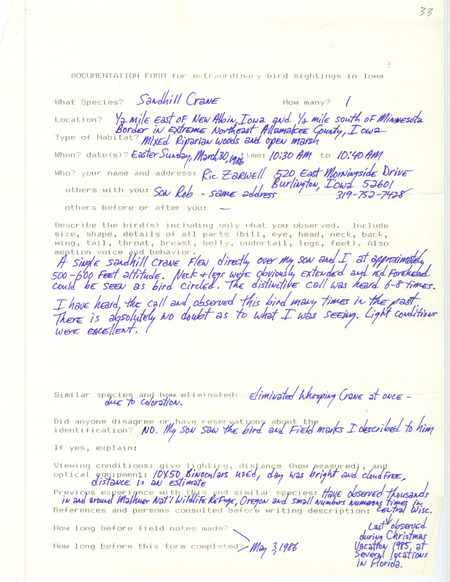 33
DOCUMENTATION FORM for extraordinary bird sightings in Iowa
What Species? Sandhill Crane How many? 1
Location? 1/2 mile east of New Albin, Iowa and 1/2 mile south of Minnesota
Border in extreme Northeast Allamakee County, Iowa
Type of Habitat? Mixed Riparian woods and open marsh
When? date(s)? Easter Sunday, March 30, 1986 time: 10:30 AM to 10:40 AM
Who? your name and address: Ric Zarwell 520 East Morningside Drive
Burlington, Iowa 52601
others with you: Son Rob - same address 319-752-7428
others before or after you: —
Describe the bird(s) including only what you observed. Include
size, shape, details of all parts (bill, eye, head, neck, back,
wing, tail, throat, breast, belly, undertail, legs, feet). Also
mention voice and behavior.
A single Sandhill Crane flew directly over my son and I, at approximately
500-600 feet altitude. Neck + legs were obviously extended and red forehead
could be seen as bird circled. The distinctive call was heard 6-8 times.
I have heard, the call and observed this bird many times in the past.
There is absolutely no doubt as to what I was seeing. Light conditions
were excellent.
Similar species and how eliminated: Eliminated Whooping Crane at once -
due to coloration.
Did anyone disagree or have reservations about the
identification? NO. My son saw the bird and field marks I described to him
If yes, explain:
Viewing conditions: give lighting, distance (how measured), and
optical equipment: 10X50 Binoculars used, day was bright and cloud free,
distance is an estimate
Previous experience with this and similar species: Have observed thousands
in and around Malheur Nat'l Wildlife Refuge, Oregon and small numbers numerous times in
References and persons consulted before writing description: Central Wisc.
How long before field notes made?
How long before this form completed? May 3, 1986
Last observed
during Christmas
Vacation 1985, at
several locations
in Florida.